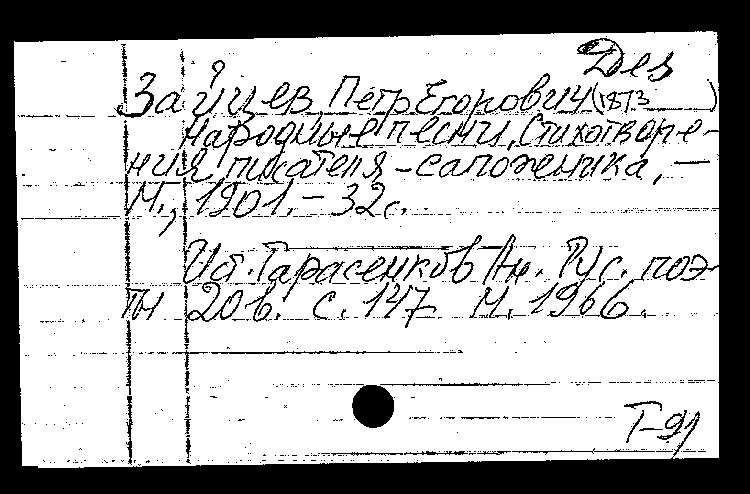 Дез
Зайцев, Петр Егорович (1873 )
Народные песни, Стихотворе-
ния писателя-сапожника, —
М., 1901. – 32 с.
Ист. Тарасенков Ан. Рус. поэ-
ты 20 в. с. 147 М. 1966.
Т-91